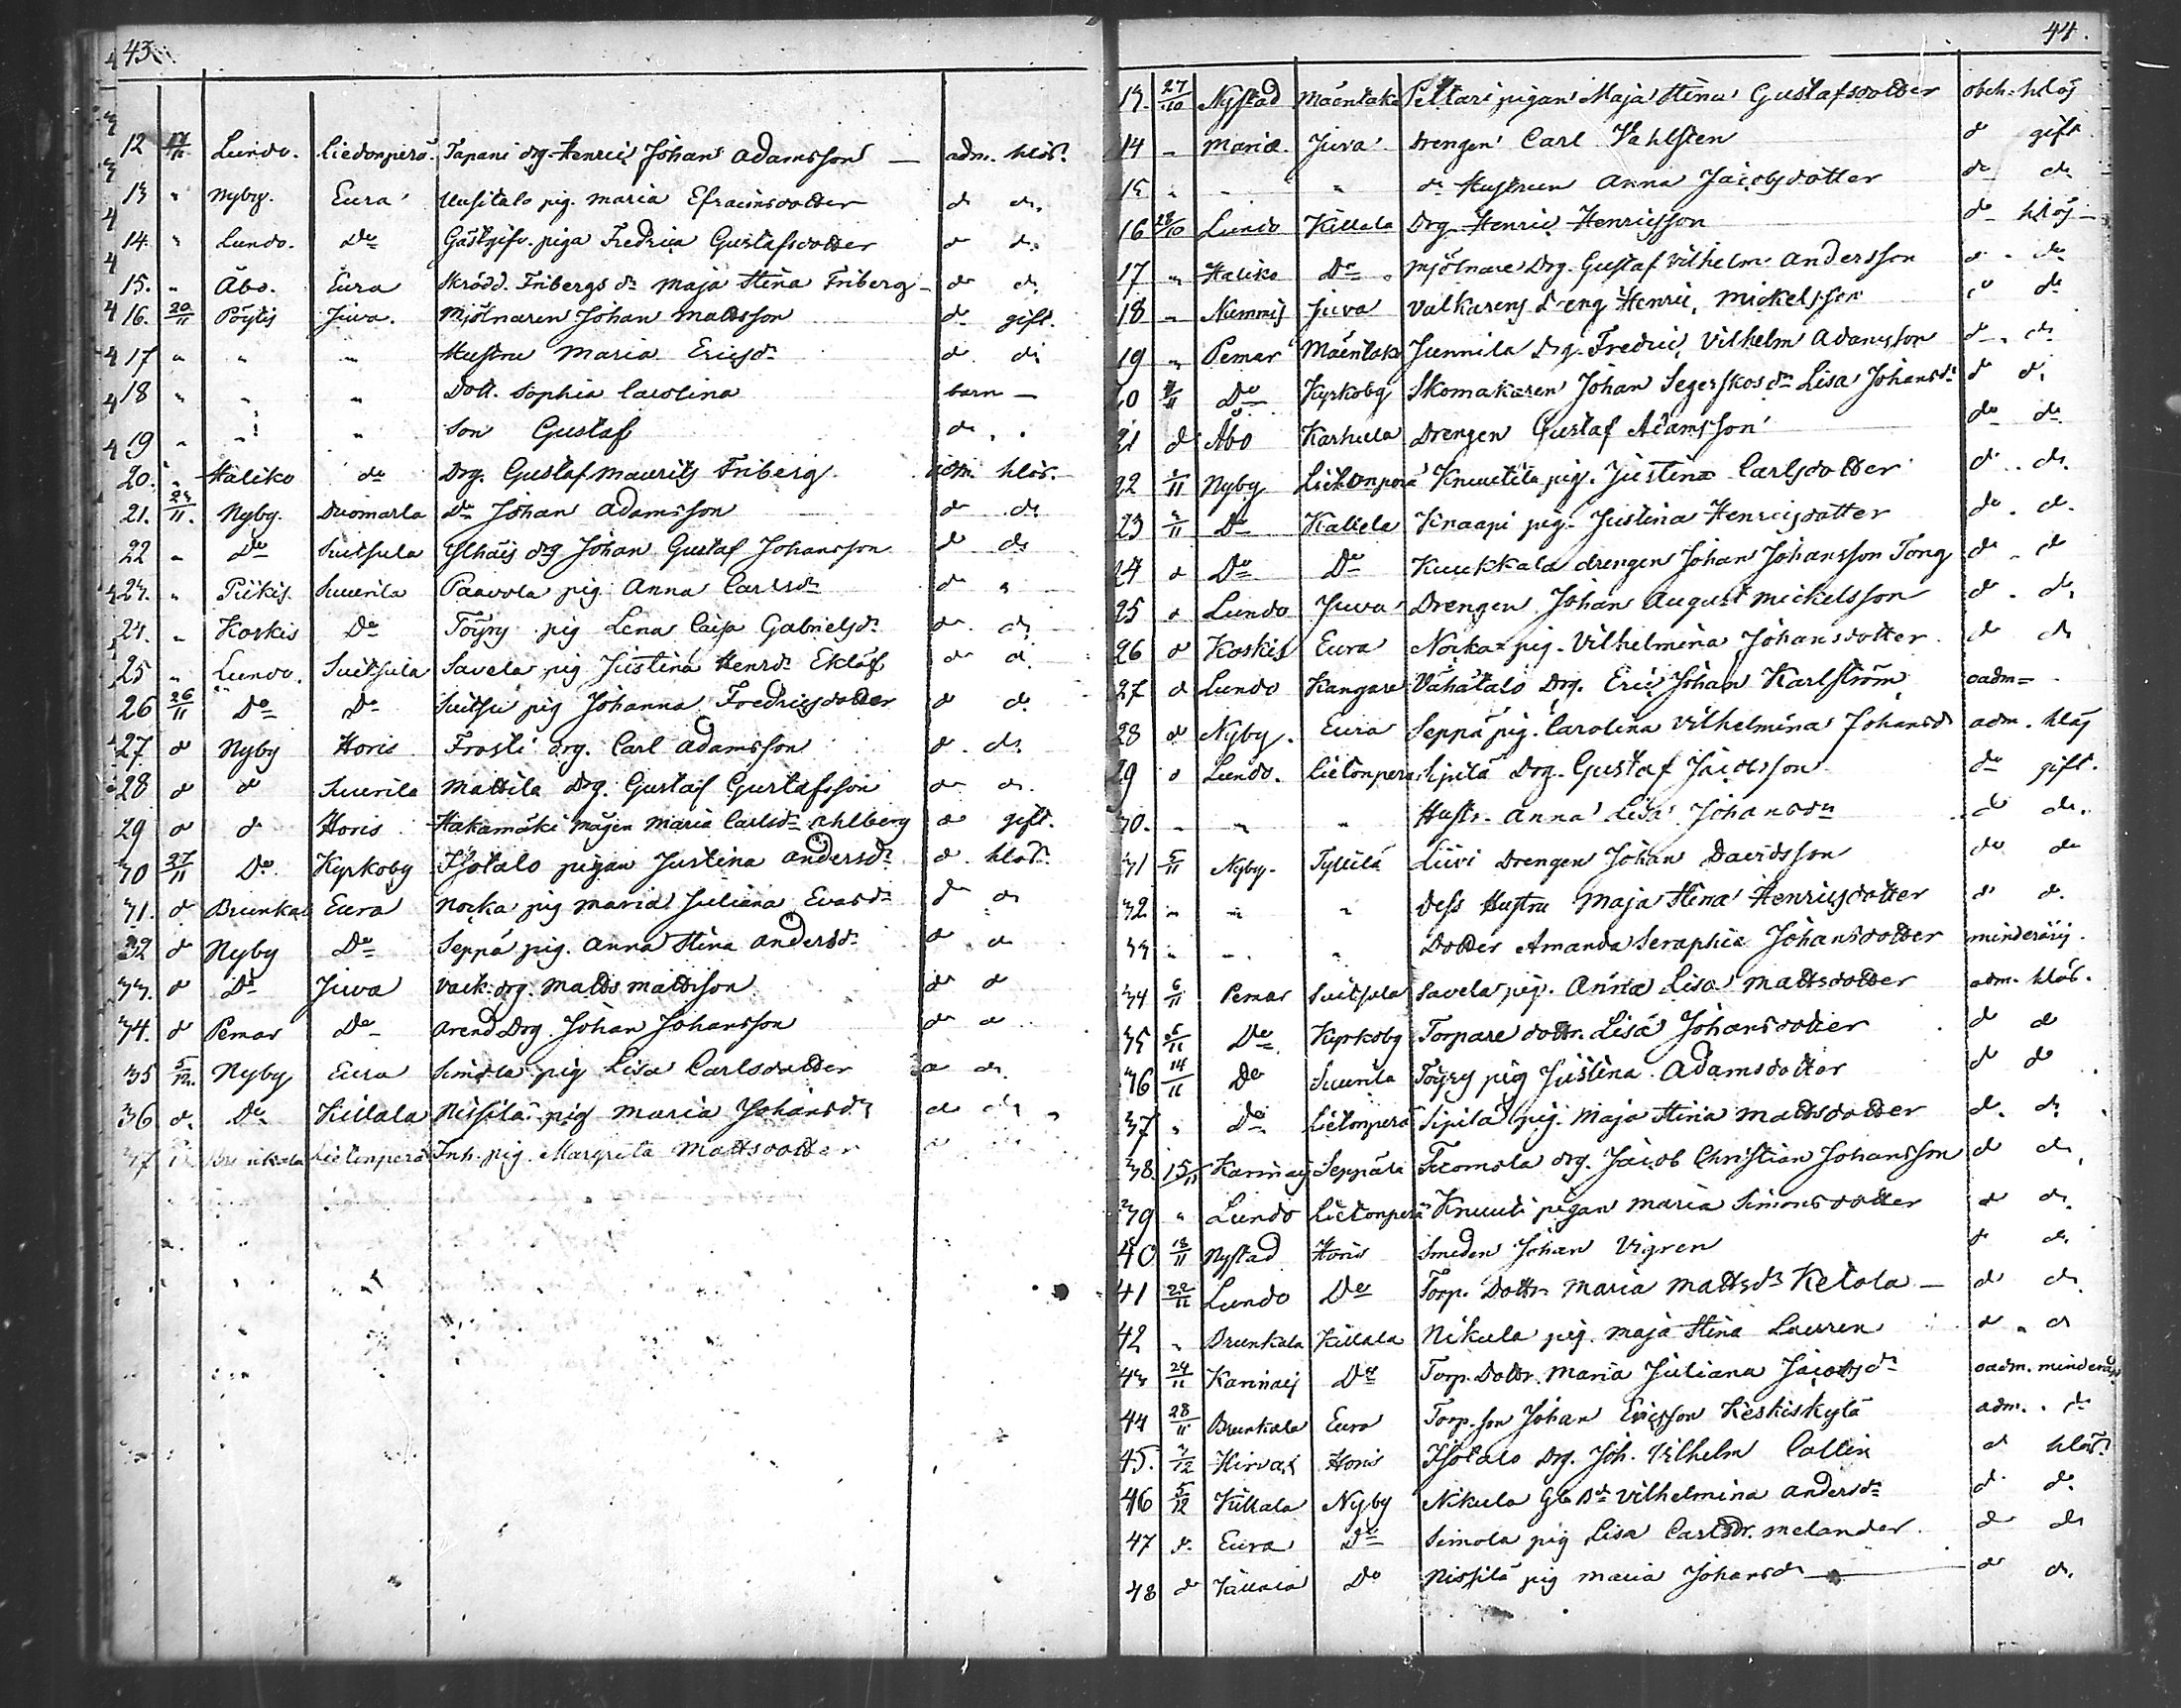 43
12 17/11 Lundo. Liedonperä. Tapani drg. Henric Johan Adamsson — adm. hlös.
13 " Nyby. Eura Uusitalo pig. Maria Efraimsdotter do do
14. " Lundo. Do Gästgifv. piga Fredrica Gustafsdotter do do
15. " Åbo. Eura Skrädd. Fribergs dr Maja Stina Friberg - do do
16. 20/11 Pöytis Juva. Mjölnaren Johan Mattsson do gift.
17 " " " Hustru Maria Ericsdr do do
18 " " " Dott. Sophia Carolina barn —
19 " " " Son Gustaf do "
20. " Haliko do Drg. Gustaf Maurits Friberg adm. hlös.
21. 23/11. Nyby. Duomarla do Johan Adamsson do do
22 " Do Suitsula Ylhäis drg Johan Gustaf Johansson do do
23. " Piikis. Suurila Paavola pig Anna Carlsdr do "
24. " Koskis Do Töyry pig Lena Caisa Gabrielsdr do do
25 " Lundo. Suitsula Savela pig Justina Henrsdr Eklöf do do
26 26/11 Do Do Suitsu pig Johanna Fredricsdotter do do
27 do Nyby Horis Frosti drg. Carl Adamsson do do
28 do do Suurila Mattila Drg. Gustaf Gustafsson do do
29 do do Horis Hakamäki mågen Maria Carlsdr Ahlberg do gift.
30 27/11 Do Kyrkoby Isotalo pigan Justina Andersdr do hlös.
31. do Brunkala Eura Nocka pig Maria Juliana Evasdr do do
32 do Nyby Do Seppä pig. Anna Stina Andersdr do do
33. do Do Juva Vack. drg. Matts Mattsson do do
34. do Pemar Do Arend Drg. Johan Johansson do do
35 5/12. Nyby Eura Simola pig Lisa Carlsdotter do do
36 do Do Killala Nissilä pig Maria Johansdr do do
37 Brunkala Lietonperä Inh. pig. Margreta Mattsdotter do
44.
13. 27/10 Nystad Mäentaka Pettari pigan Maja Stina Gustafsdotter obeh. hlös
14 - Mariæ. Juva Drengen Carl Vahlsten do gift
15 " " " do Hustrun Anna Jacobsdotter do do
16 28/10 Lundo Killala Drg. Henric Henricsson do hlös
17 " Haliko Do Mjölnare Drg. Gustaf Vilhelm Andersson do do
18 " Nummis Juva Valkarens dreng Henric Mickelsson do do
19 " Pemar Mäentaka Junnila Drg. Fredric Vilhelm Adamsson do do
20 /11 Do Kyrkoby Skomakaren Johan Segerskos dr Lisa Johansdr do do
21 do Åbo Karhula Drengen Gustaf Adamsson do do
22 /11 Nyby Lietonperä Knuutila pig. Justina Carlsdotter do do
23 /11 Do Kallela Knaapi pig. Justina Henricsdotter do do
24 do Do Do Kuukkala drengen Johan Johansson Tong do do
25 do Lundo Juva Drengen Johan August Mickelsson do do
26 do Koskis Eura Nocka pig. Vilhelmina Johansdotter do do
27 do Lundo Kangare Vähätalo Drg. Eric Johan Karlström oadm
28 do Nyby. Eura Seppä pig. Carolina Vilhelmina Johansdr adm. hlös
29 do Lundo. Lietonperä Sipilä Drg. Gustaf Jacobsson do gift.
30. " " " Hustr. Anna Lisa Johansdr do do
31 5/11 Nyby. Tyllilä Liivi Drengen Johan Davidsson do do
32 " " " Dess Hustru Maja Stina Henricsdotter do do
33 " " " Dotter Amanda Seraphia Johansdotter minderårig.
34 6/11 Pemar Suitsula Savela pig. Anna Lisa Mattsdotter adm. hlös.
35 /11 Do Kyrkoby Torpare dottr. Lisa Johansdotter do do
36 14/11 Do Suurila Töyry pig Justina Adamsdotter do do
37 " Do Lietonperä Sipilä pig. Maja Stina Mattsdotter do do
38. 15/11 Karinais Seppälä Tuomola drg. Jacob Christian Johansson do do
39 " Lundo Lietonperä Knuuti pigan Maria Simonsdotter do do
40 18/11 Nystad Horis Smeden Johan Vigren do do
41 22/11 Lundo Do Torp. Dottr Maria Mattsdr Ketola — do do
42 " Brunkala Killala Nikula pig. Maja Stina Lauren do do
43 24/11 Karinais Do Torp. Dottr. Maria Juliana Jacobsdr oadm. minderårig
44 28/11 Brunkala Eura Torp. son Johan Ericsson Keskiskylä adm. do
45. /12 Hirvas Horis Isotalo Drg. Joh. Vilhelm Collin do hlös.
46 5/12 Killala Nyby Nikula Gb Dr Vilhelmina Andersdr do do
47 do Eura Do Simola pig Lisa Carlsdr. Melander do do
48 do Killala Do Nissilä pig Maria Johansdr — do do